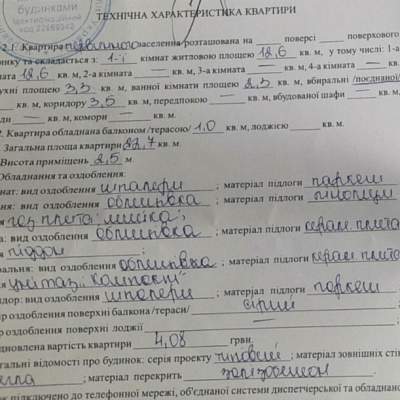 будинками
код 22869342
ТЕХНІЧНА ХАРАКТЕРИСТИКА КВАРТИРИ
2.1. Квартира заселення розташована на — поверсі — поверхового
нку та складається з: 1-ї кімнат житловою площею 12,6 кв. м, у тому числі: 1-а
ната 12,6 кв. м, 2-а кімната — кв. м, 3-а кімната — кв. м, 4-а кімната — кв.
ухні площею 3,3 кв. м, ванної кімнати площею 2,3 кв. м, вбиральні /поєднаної/
кв. м, коридору 3,5 кв. м, передпокою — кв. м, вбудованої шафи — кв. м,
ди — кв. м, комори — кв. м.
2. Квартира обладнана балконом /терасою/ 1,0 кв. м, лоджією кв. м.
Загальна площа квартири 22,7 кв. м
Висота приміщень 2,5 м.
Обладнання та оздоблення:
нат: вид оздоблення шпалери ; матеріал підлоги паркет
ня: вид оздоблення облицовка ; матеріал підлоги лінолеум
газ плита, мийка;
а: вид оздоблення облицовка ; матеріал підлоги керам. плитка
піддон ;
ральня: вид оздоблення облицовка ; матеріал підлоги керам плитка
унітаз, компакт
идор: вид оздоблення шпалери ; матеріал підлоги паркет
ір оздоблення поверхні балкону /тераси/ сірий
р оздоблення поверхні лоджії —
дновлена вартість квартири 4,08 грвн.
гальні відомості про будинок: серія проекту типовий ; матеріал зовнішніх стін
цегла ; матеріал перекрить залізобетон.
ок підключено до телефонної мережі, об'єднаної системи диспетчерської та обладнано